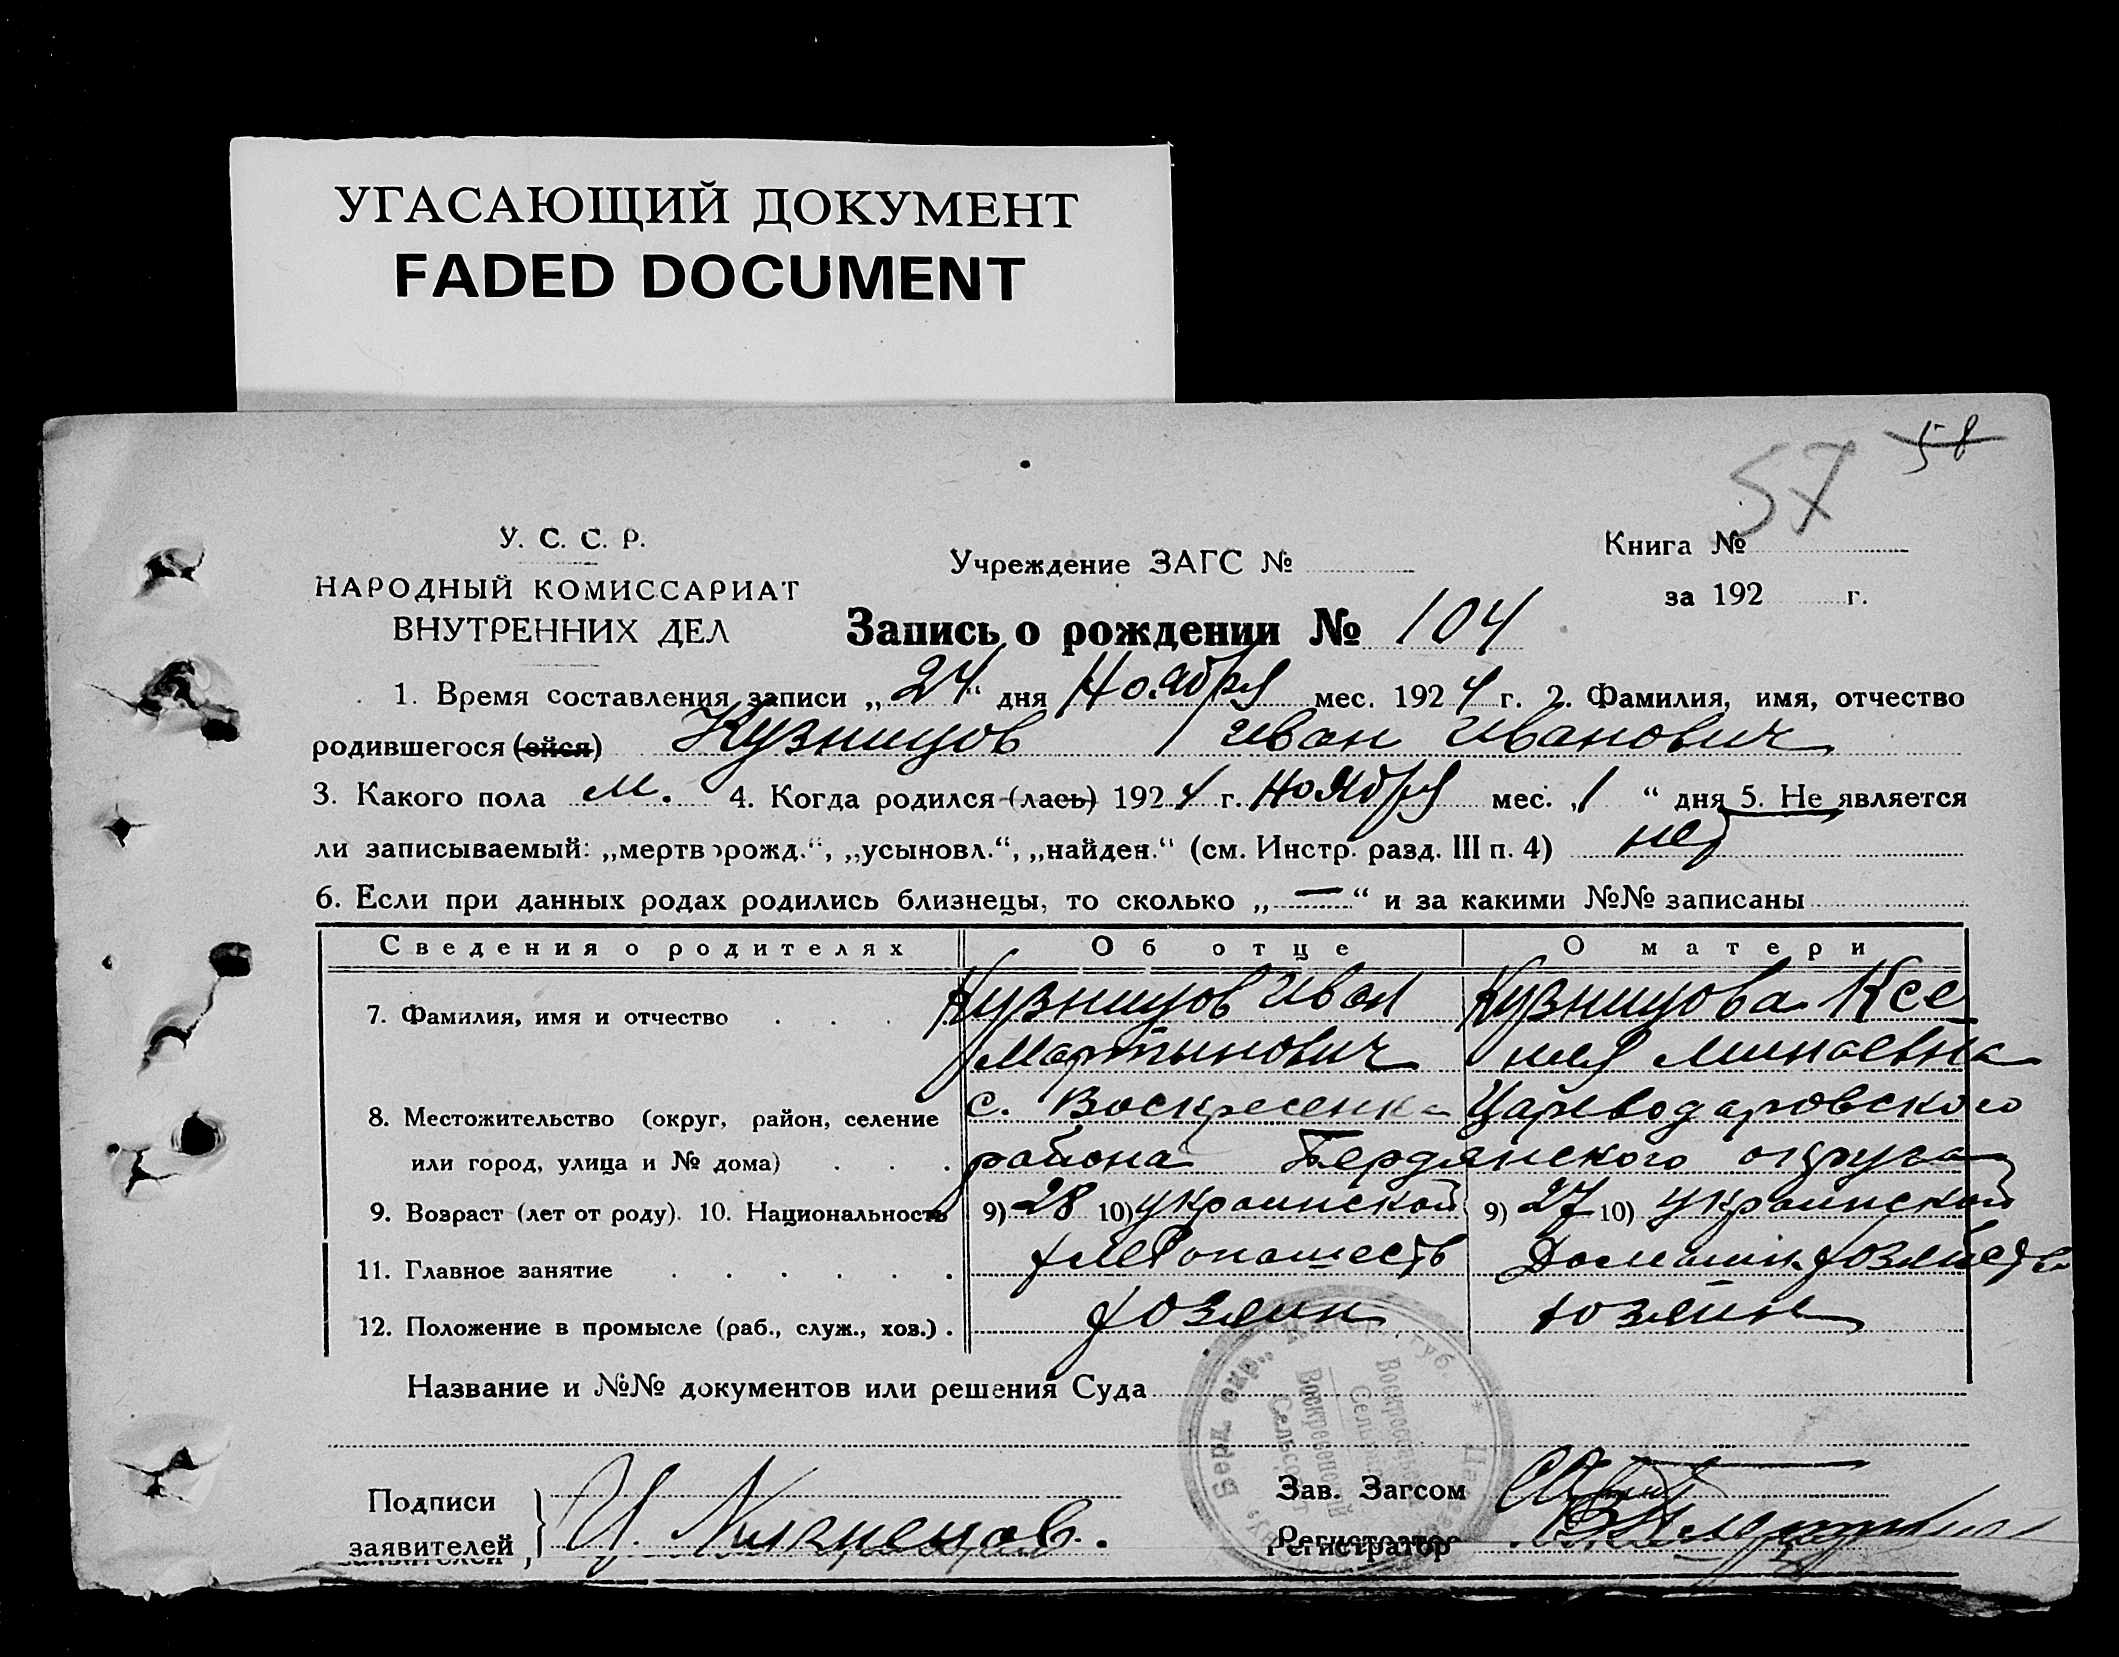 УГАСАЮЩИЙ ДОКУМЕНТ
FADED DOCUMENT
58
57
У. С. С. Р.
НАРОДНЫЙ КОМИССАРИАТ
ВНУТРЕННИХ ДЕЛ
Учреждение ЗАГС №
Книга №
за 192 г.
Запись о рождении № 104
1. Время составления записи „24“ дня Ноября мес. 1924 г. 2. Фамилия, имя, отчество
родившегося (ейся) Кузницов Иван Иванович
3. Какого пола м. 4. Когда родился (лась) 1924 г. Ноября мес. „1“ дня 5. Не является
ли записываемый: „мертворожд.“, „усыновл.“, „найден.“ (см. Инстр. разд. III п. 4) нет
6. Если при данных родах родились близнецы, то сколько „—“ и за какими №№ записаны
Сведения о родителях Об отце О матери
7. Фамилия, имя и отчество Кузницов Иван Кузницова Ксе
Мартинович ния Минаевна
8. Местожительство (округ, район, селение с. Воскресенка Цареводаровского
или город, улица и № дома) района Бердянского округа
9. Возраст (лет от роду). 10. Национальность 9) 28 10) украинской 9) 27 10) украинской
11. Главное занятие хлебопашеств Домашн. хозяйство
12. Положение в промысле (раб., служ., хоз.) хозяин хозяин
Название и №№ документов или решения Суда
Берд. окр.,
Воскресенский
Сельсовет
Подписи
заявителей } И.
Зав. Загсом
Регистратор